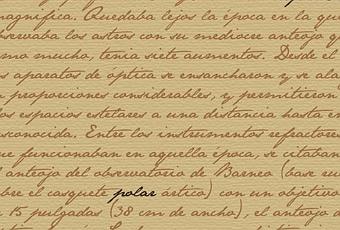 magnífica. Quedaba lejos la época en la que
observaba los astros con su mediocre anteojo q
omo mucho, tenía siete aumentos. Desde el
os aparatos de óptica se ensancharon y se ala
n proporciones considerables, y permitieron
os espacios estelares a una distancia hasta en
sconocida. Entre los instrumentos refractores
ue funcionaban en aquella época, se citaban
l anteojo del observatorio de Barneo (base
bre el casquete polar ártico) con un objetivo
15 pulgadas (38 cm de ancho), el anteojo d